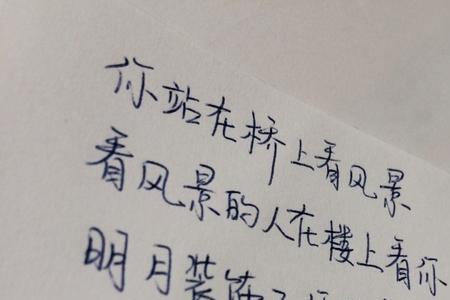 你站在桥上看风景
看风景的人在楼上看你
明月装饰了